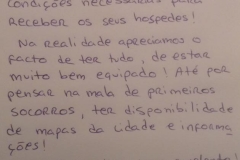 condições necessárias para
receber os seus hospedes!
Na realidade apreciamos o
facto de ter tudo, de estar
muito bem equipado! Até por
pensar na mala de primeiros
socorros, ter disponibilidade
de mapas da cidade e informa
ções!